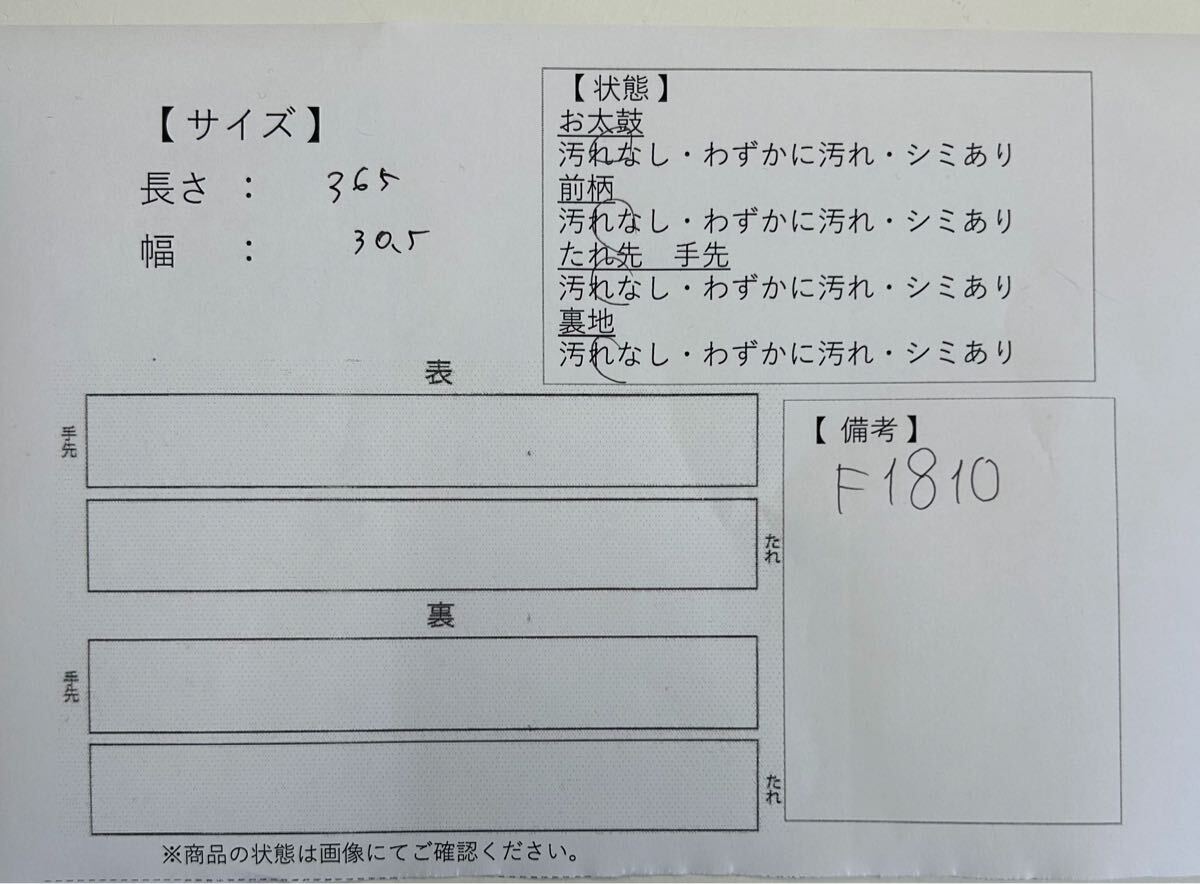 【サイズ】
長さ : 365
幅 : 30.5
【状態】
お太鼓
汚れなし・わずかに汚れ・シミあり
前柄
汚れなし・わずかに汚れ・シミあり
たれ先 手先
汚れなし・わずかに汚れ・シミあり
裏地
汚れなし・わずかに汚れ・シミあり
表
手先
たれ
裏
手先
たれ
【備考】
F1810
※商品の状態は画像にてご確認ください。